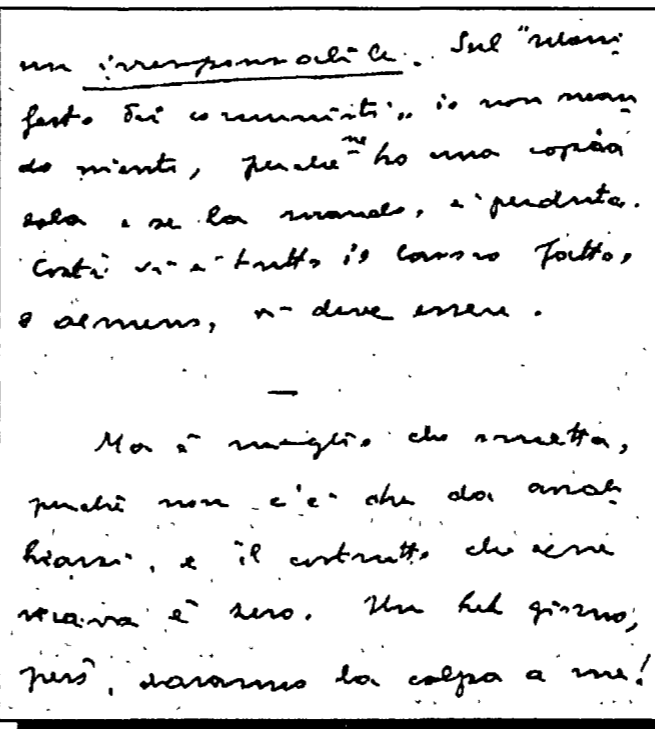 un irresponsabile. Sul "Mani
festo dei comunisti„ io non man
do niente, perchè ne ho una copia
sola e se la mando, è perduta.
Costì vi è tutto il lavoro fatto,
o almeno, vi deve essere.
—
Ma è meglio che smetta,
perchè non c'è che da arrab
biarsi, e il costrutto che se ne
ricava è zero. Un bel giorno,
però, daranno la colpa a me!